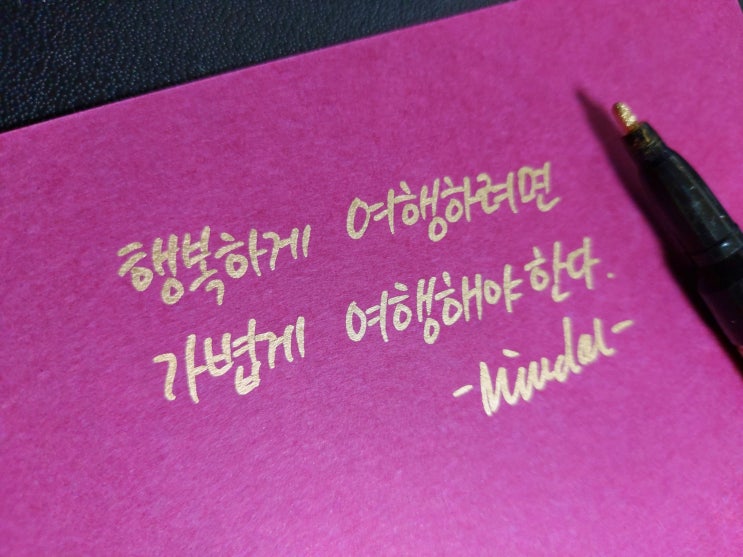 행복하게 여행하려면
가볍게 여행해야 한다.